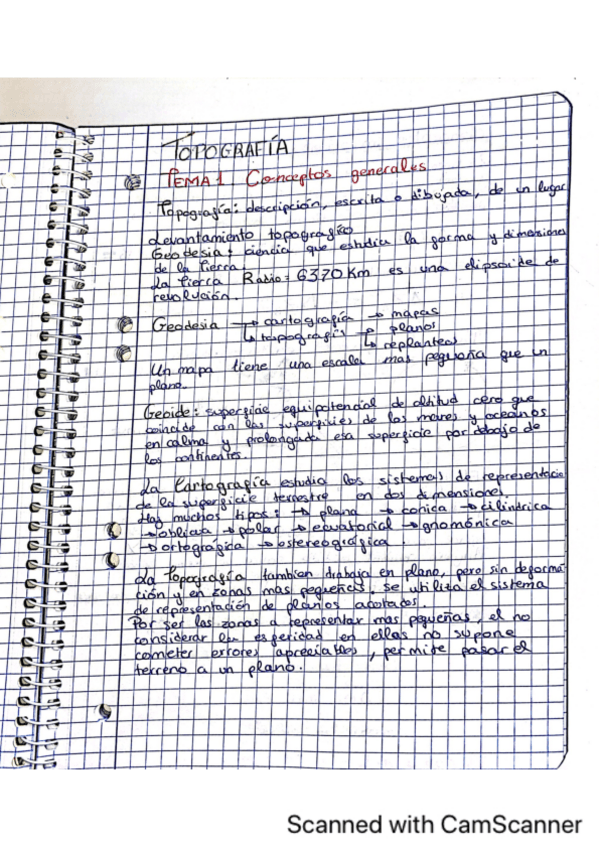 TOPOGRAFÍA
TEMA 1 Conceptos generales
Topografía: descripción, escrita o dibujada, de un lugar
Levantamiento topográfico
Geodesia: ciencia que estudia la forma y dimensiones
de la Tierra.
La Tierra Radio = 6370 Km es una elipsoide de
revolución.
Geodesia → cartografía → mapas
↳ topografía → planos
↳ replanteos
Un mapa tiene una escala mas pequeña que un
plano.
Geoide: superficie equipotencial de altitud cero que
coincide con las superficies de los mares y oceanos
en calma y prolongada esa superficie por debajo de
los continentes.
La Cartografía estudia los sistemas de representación
de la superficie terrestre en dos dimensiones.
Hay muchos tipos: → plana → conica → cilindrica
→ oblicua → polar → ecuatorial → gnomónica
→ ortográfica → estereográfica.
La Topografía tambien trabaja en plano, pero sin deforma-
ción y en zonas mas pequeñas, se utiliza el sistema
de representación de planos acotados.
Por ser las zonas a representar mas pequeñas, el no
considerar la esfericidad en ellas no supone
cometer errores apreciables, permite pasar el
terreno a un plano.
Scanned with CamScanner